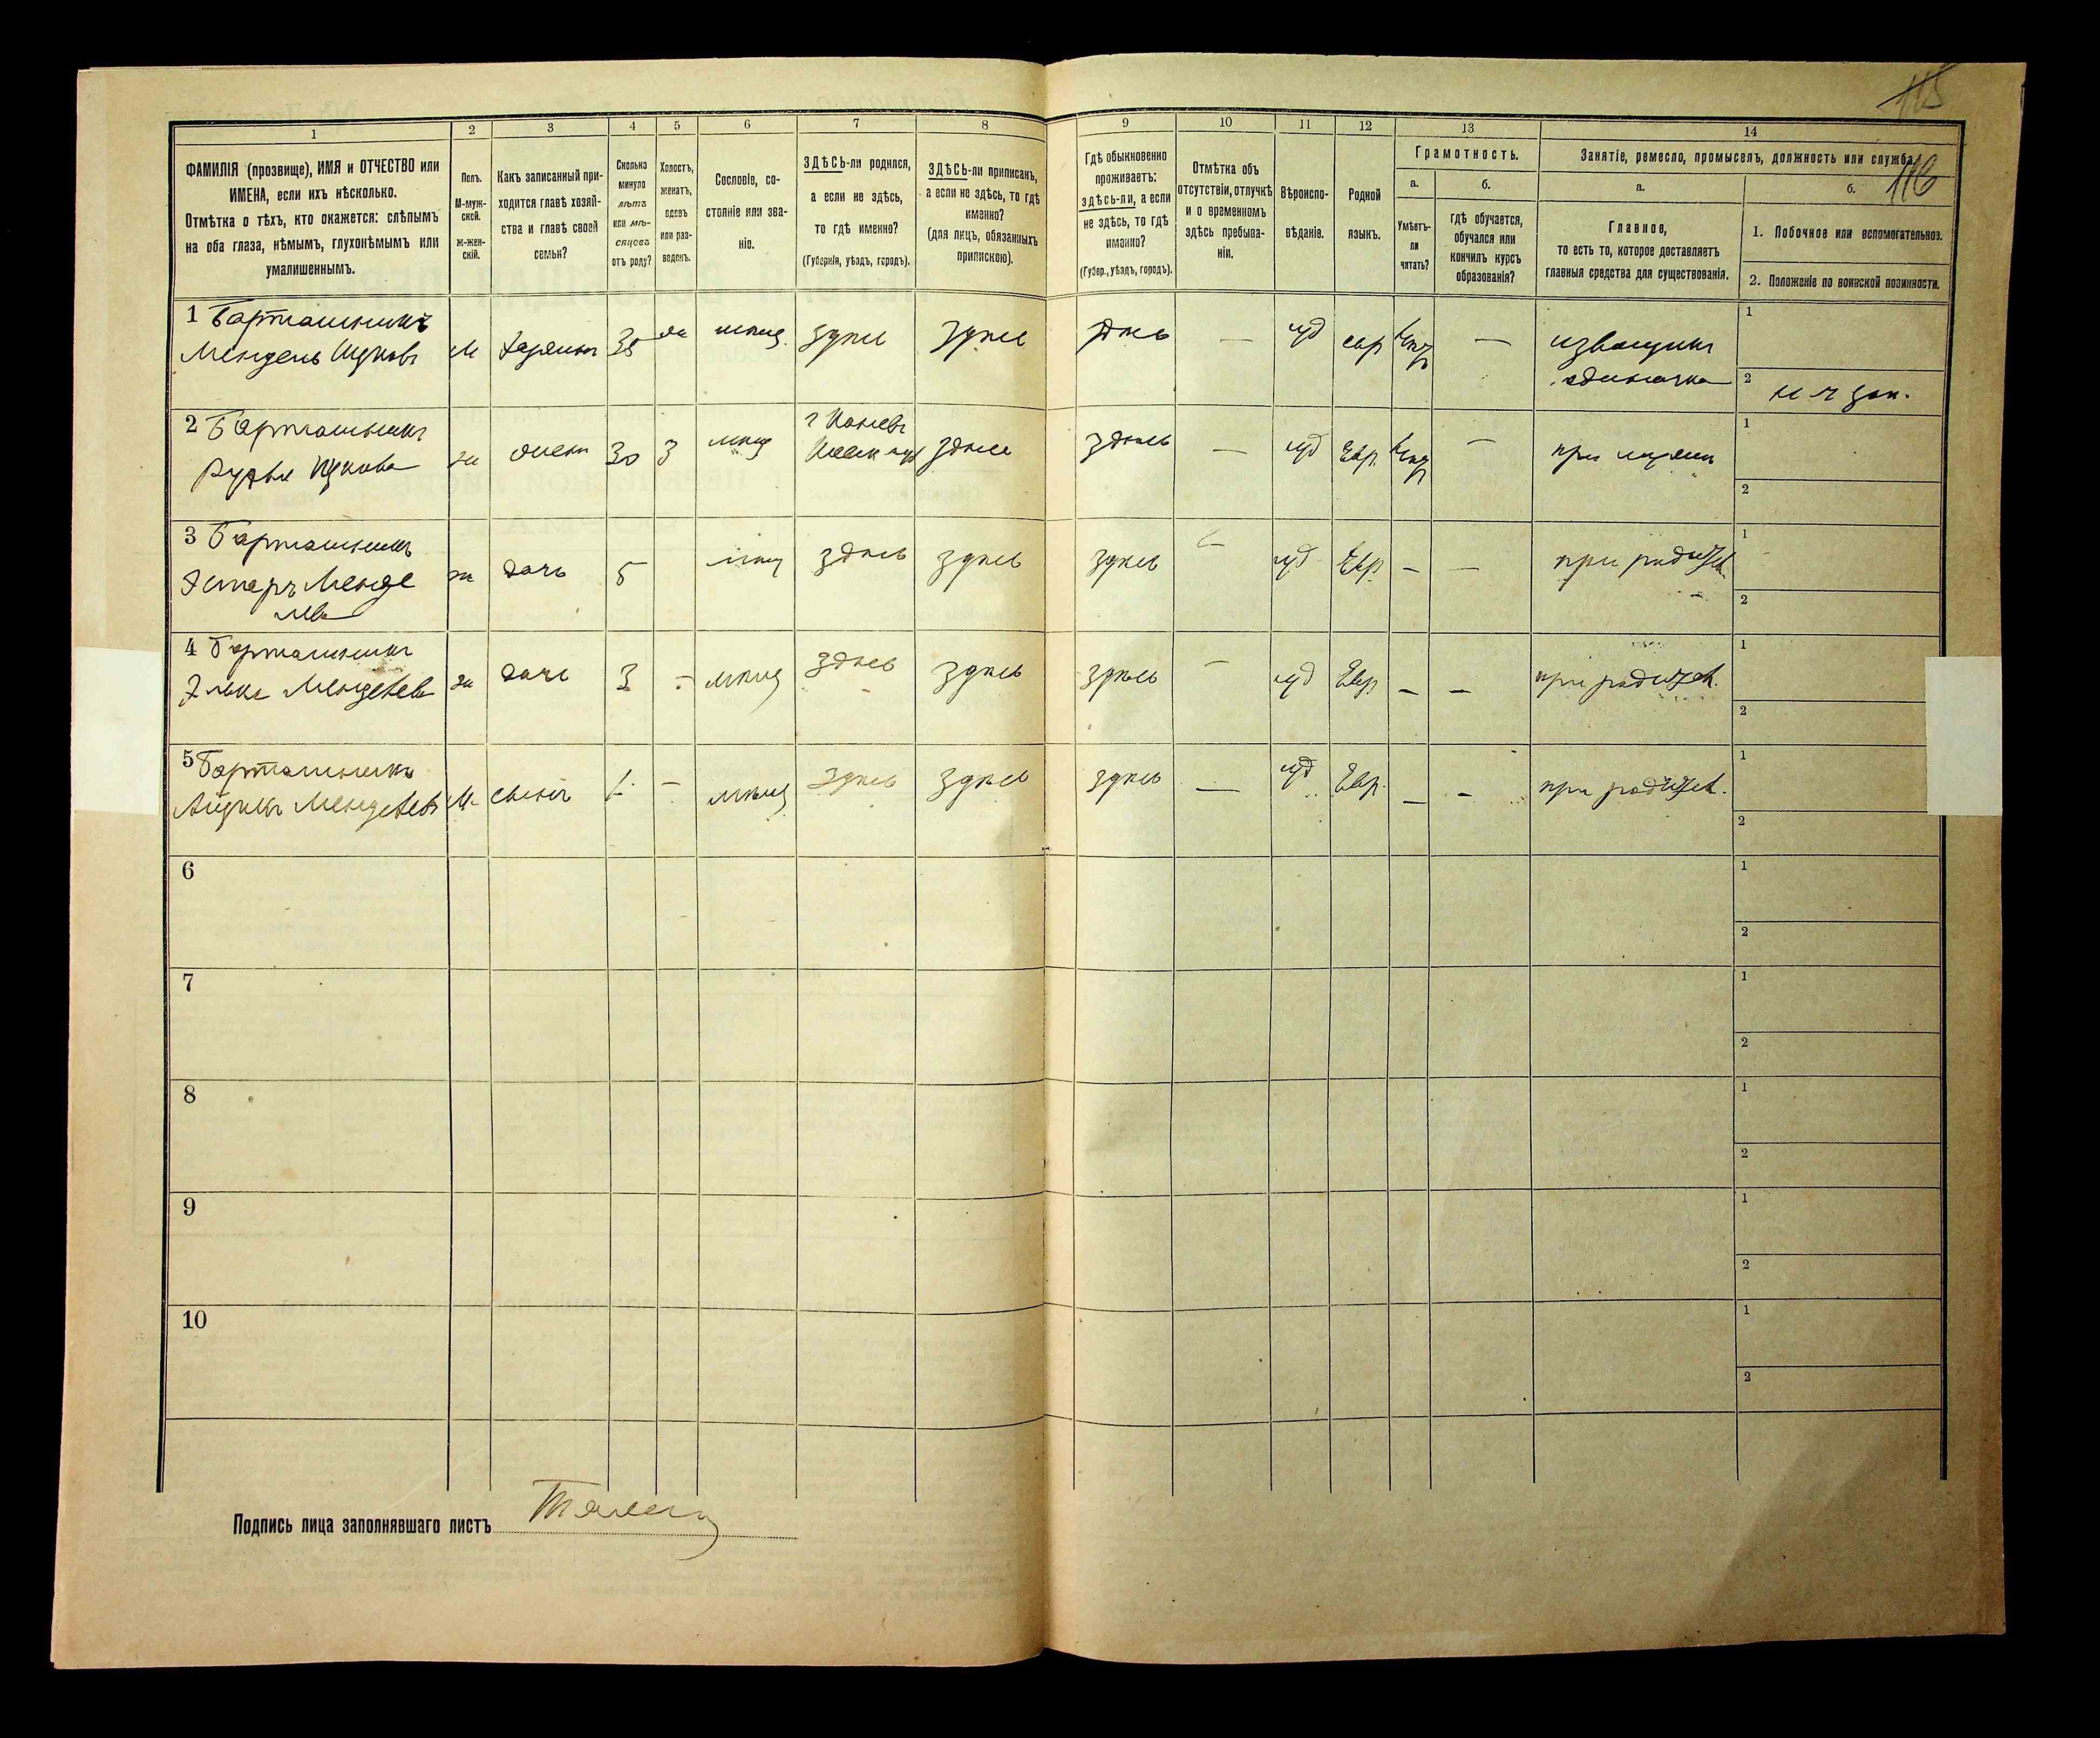 115
116
1
2
3
4
5
6
7
8
9
10
11
12
13
14
ФАМИЛІЯ (прозвище), ИМЯ и ОТЧЕСТВО или
ИМЕНА, если ихъ нѣсколько.
Отмѣтка о тѣхъ, кто окажется: слѣпымъ
на оба глаза, нѣмымъ, глухонѣмымъ или
умалишеннымъ.
Полъ.
М-муж-
ской.
Ж-жен-
скій.
Какъ записанный при-
ходится главѣ хозяй-
ства и главѣ своей
семьи?
Сколько
минуло
лѣтъ
или мѣ-
сяцевъ
отъ роду?
Холостъ,
женатъ,
вдовъ
или раз-
веденъ.
Сословіе, со-
стояніе или зва-
ніе.
ЗДѢСЬ-ли родился,
а если не здѣсь,
то гдѣ именно?
(Губернія, уѣздъ, городъ).
ЗДѢСЬ-ли приписанъ,
а если не здѣсь, то гдѣ
именно?
(для лицъ, обязанныхъ
припискою).
Гдѣ обыкновенно
проживаетъ:
здѣсь-ли, а если
не здѣсь, то гдѣ
именно?
(Губер., уѣздъ, городъ).
Отмѣтка объ
отсутствіи, отлучкѣ
и о временномъ
здѣсь пребыва-
ніи.
Вѣроиспо-
вѣданіе.
Родной
языкъ.
Грамотность.
а.
б.
Умѣетъ-
ли
читать?
гдѣ обучается,
обучался или
кончилъ курсъ
образованія?
Занятіе, ремесло, промыселъ, должность или служба.
а.
б.
Главное,
то есть то, которое доставляетъ
главныя средства для существованія.
1. Побочное или вспомогательное.
2. Положеніе по воинской повинности.
1 Барташникъ
Мендель Ицковъ
М
хозяинъ
35
мѣщ
здѣсь
здѣсь
здѣсь
—
іуд
евр
—
извощикъ
одиночка
1
2
2 Барташникъ
Рухля Ицкова
ж
жена
30
З
мѣщ
г Каневъ
здѣсь
здѣсь
—
іуд
Евр.
—
при мужѣ
1
2
3 Барташникъ
Эстеръ Менде
лев
ж
дочь
5
мѣщ
здѣсь
здѣсь
здѣсь
—
іуд
Евр.
—
—
при родител
1
2
4 Барташникъ
Менделев
ж
дочь
3
-
мѣщ
здѣсь
здѣсь
здѣсь
—
іуд
Евр.
—
—
при родител.
1
2
5 Барташникъ
Айзикъ Менделев
М
сынъ
1
—
мѣщ
здѣсь
здѣсь
здѣсь
—
іуд
Евр.
—
-
при родител.
1
2
6
1
2
7
1
2
8
1
2
9
1
2
10
1
2
Подпись лица заполнявшаго листъ